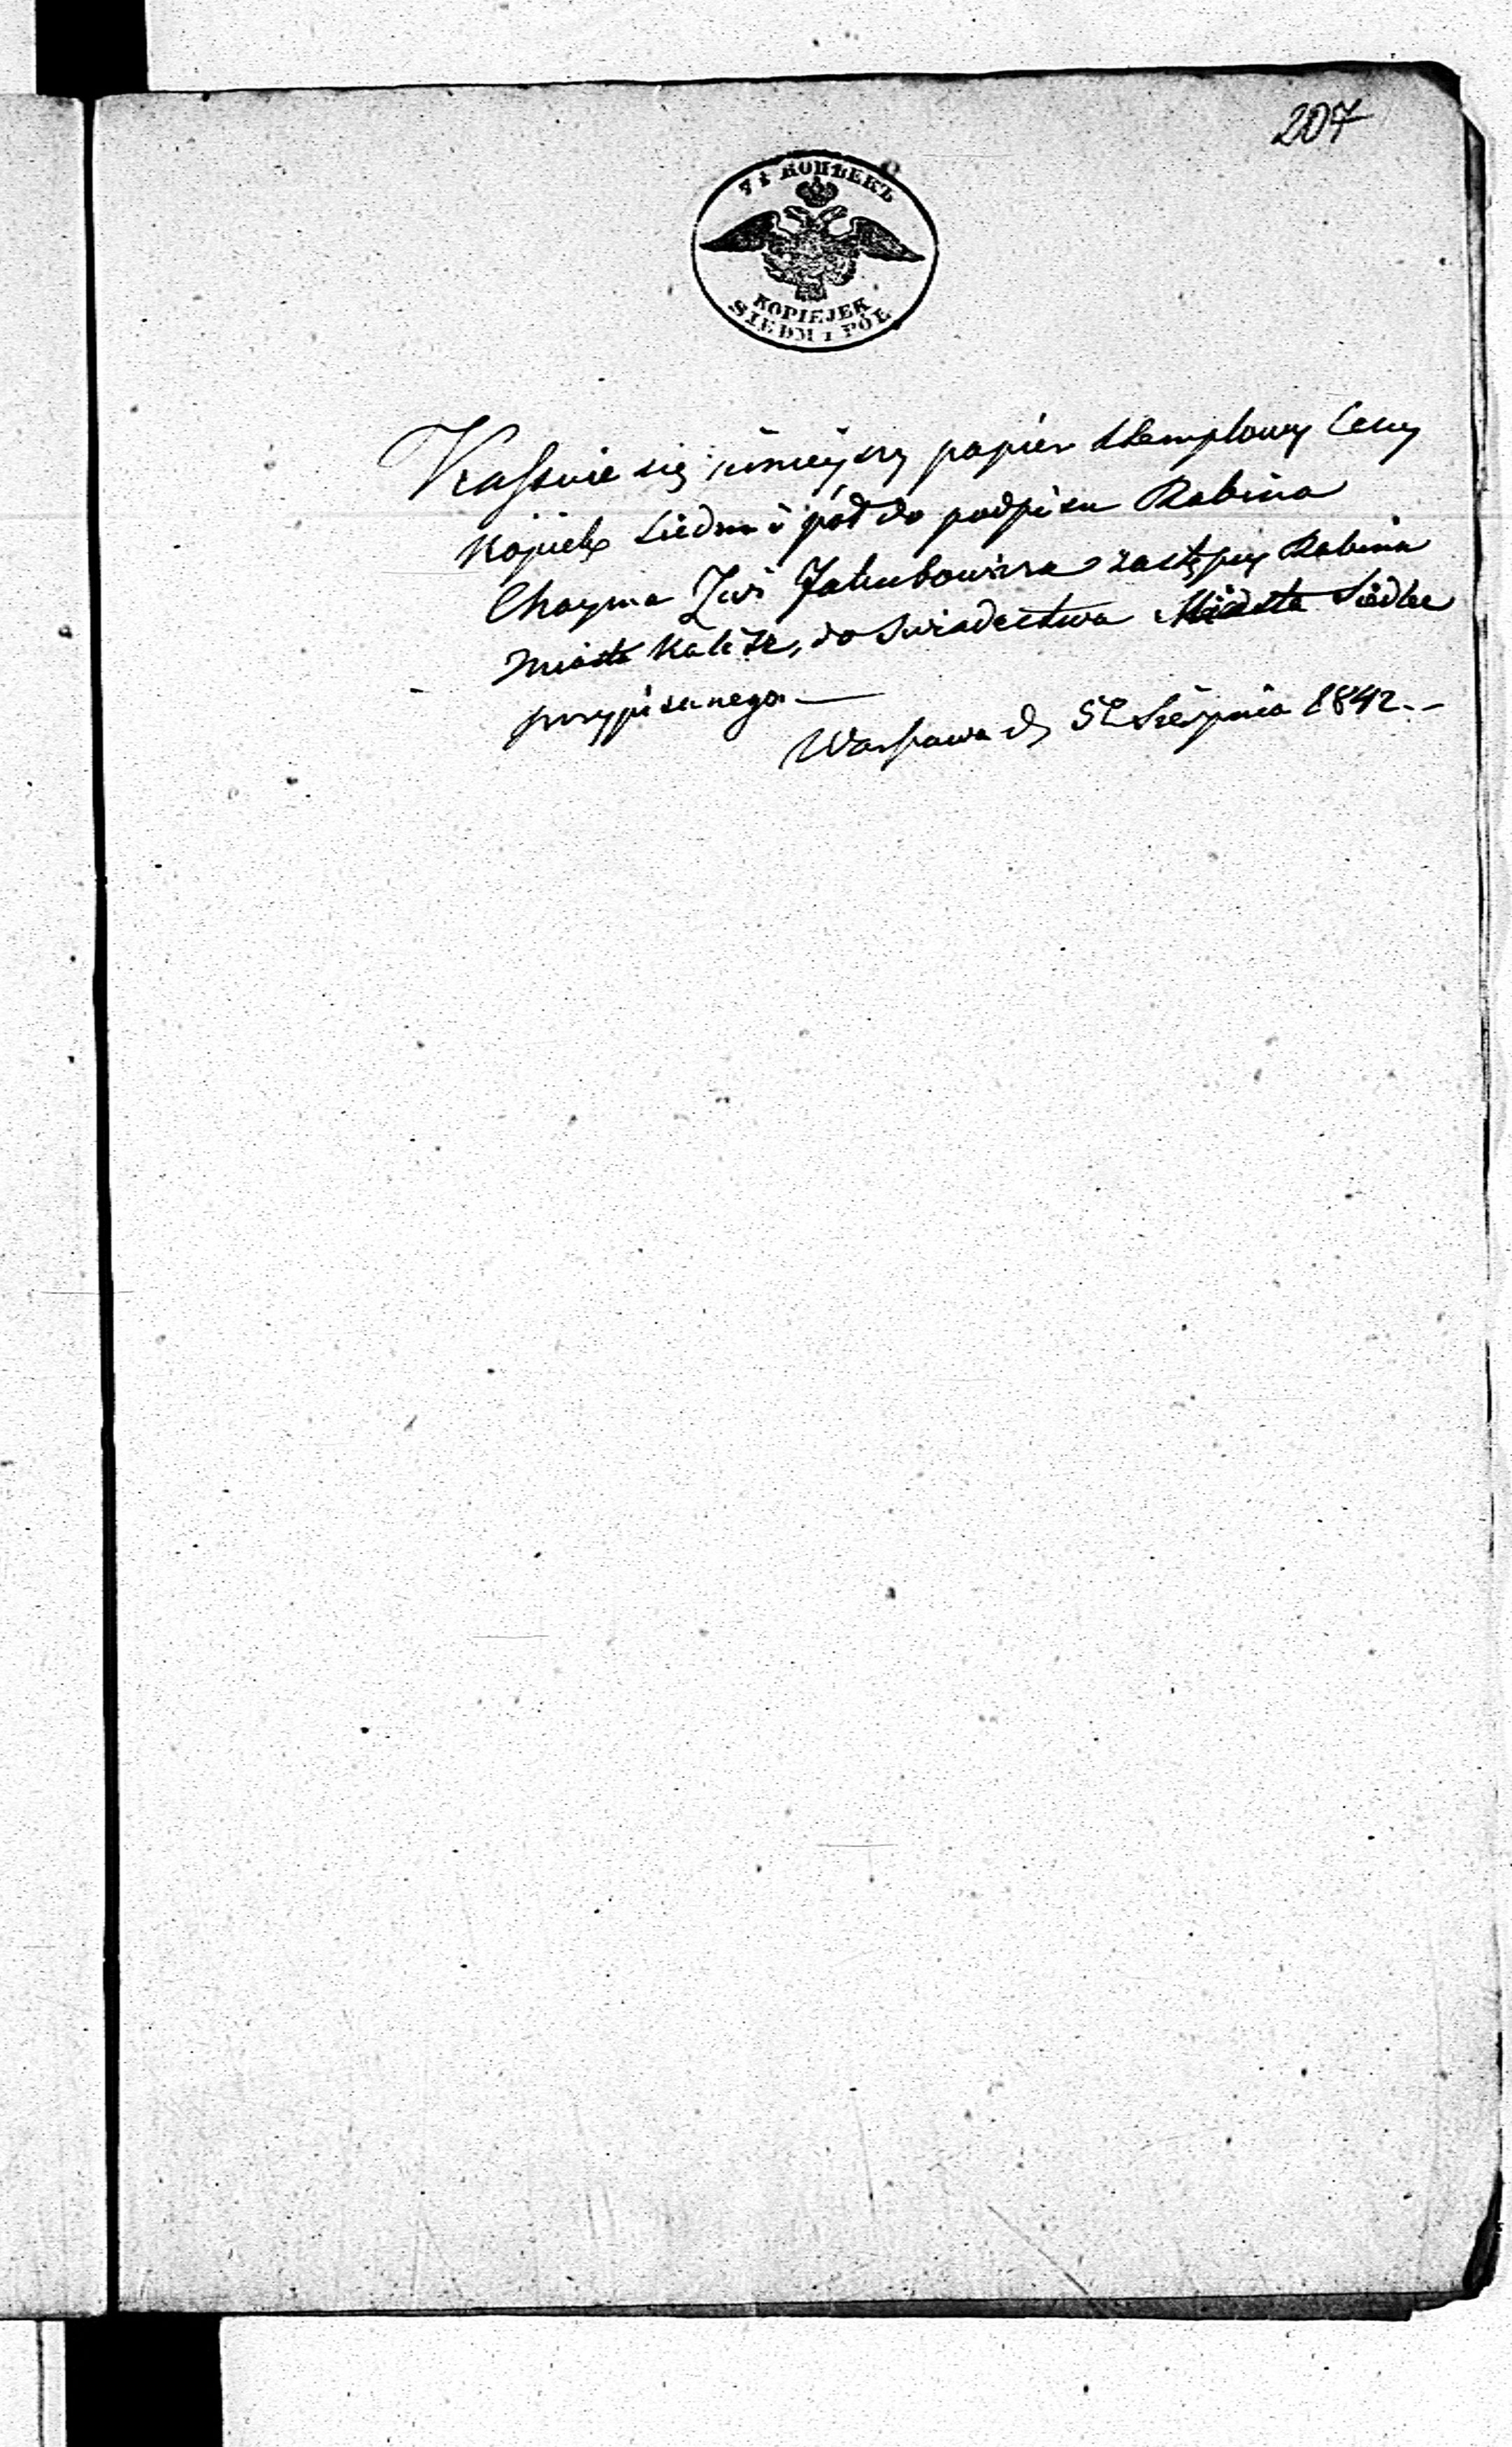 207
7½ КОПѢЕКЪ
KOPIEJEK
SIEDM i PÓŁ
Kassuie się ninieyszy papier stemplowy Ceny
Kopiek Siedm i pół do podpisu Rabina
Chayma Jakubowicza zastępcy Rabina
Miasta Kalisza, do Swiadectwa Miasta Siedlec
przypisanego. —
Warszawa d. Sierpnia 1842. -